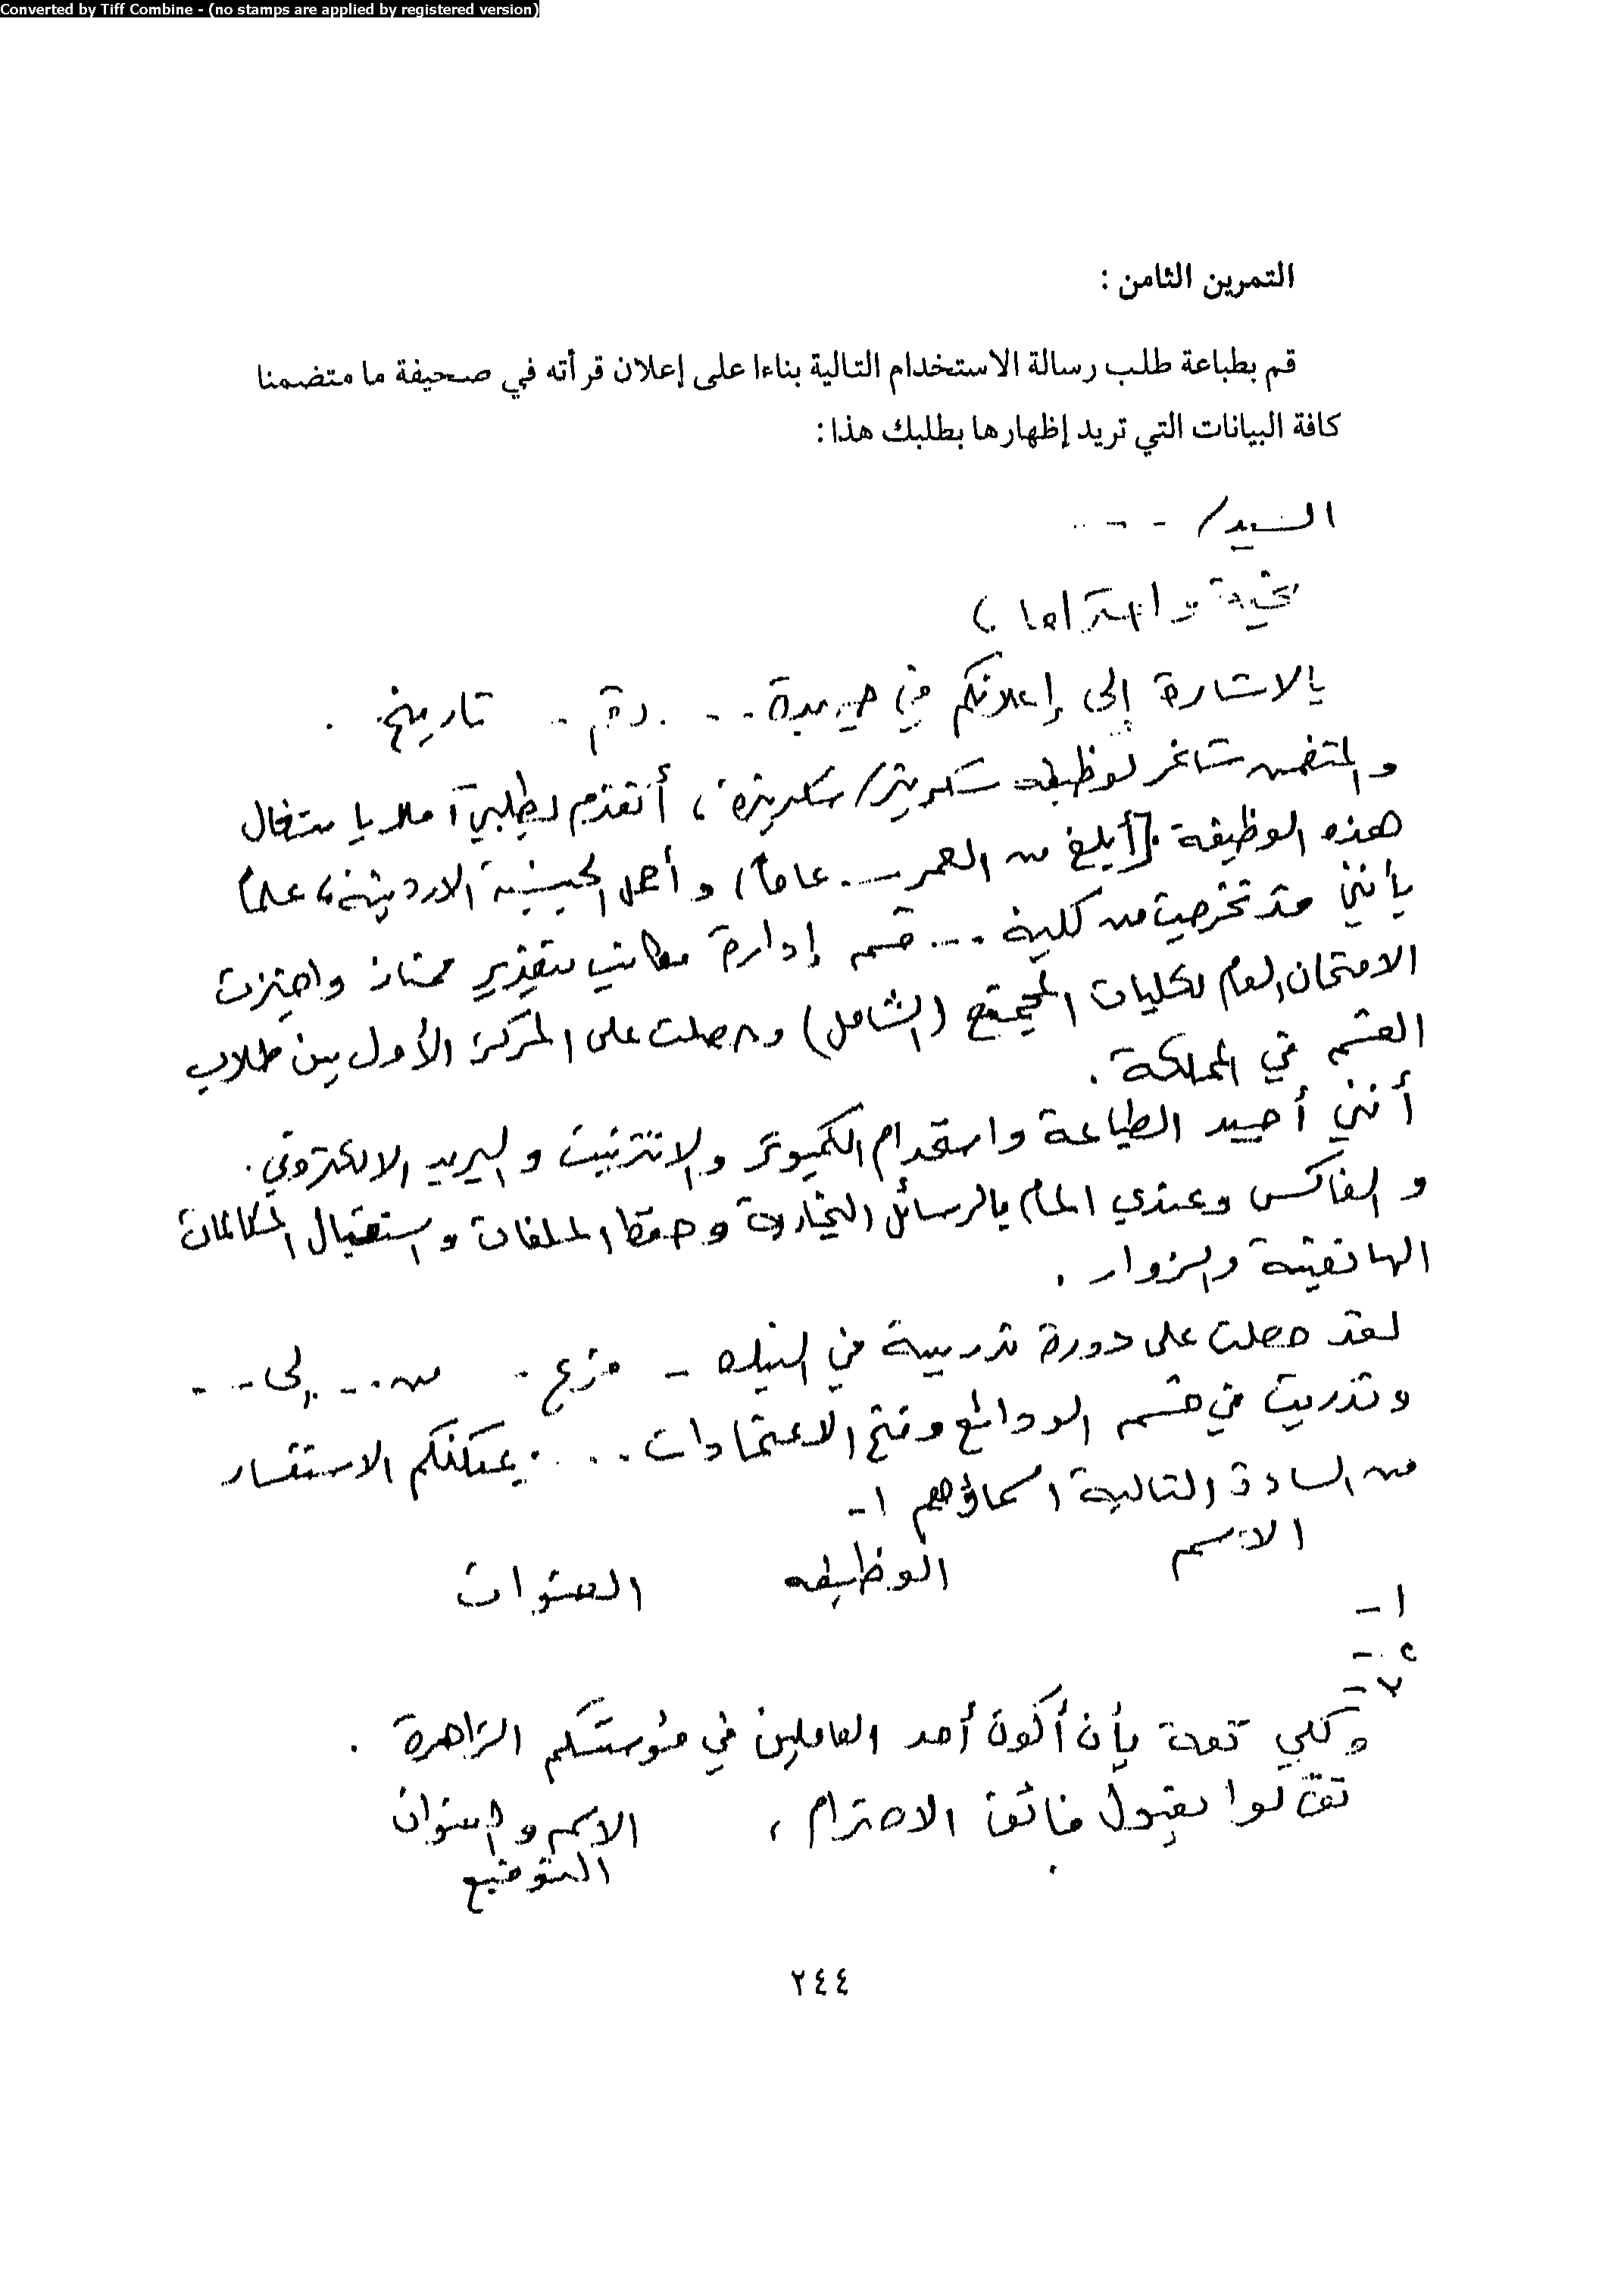 Converted by Tiff Combine - (no stamps are applied by registered version)
التمرين الثامن :
قم بطباعة طلب رسالة الاستخدام التالية بناءا على إعلان قرأته في صحيفة ما متضمنا
كافة البيانات التي تريد إظهارها بطلبك هذا :
السيد / - - ..
تحية واحتراما ،
بالاشارة إلى إعلانكم في جريدة . . . . رقم .. تاريخ .
والمتضمن شاغر لوظيفة سكرتير / سكرتيرة ، أتقدم بطلبي آملا باشغال
هذه الوظيفة . [أبلغ من العمر ... عاماً ) وأحمل الجنسية الاردنية ، علماً
بأنني قد تخرجت من كلية .... قسم إدارة مكاتب بتقدير ممتاز واجتزت
الامتحان العام لكليات المجتمع ( الشامل ) وحصلت على المركز الأول بين طلاب
القسم في المملكة .
أنني أجيد الطباعة واستخدام الكمبيوتر والانترنيت والبريد الالكتروني .
والفاكس وعندي المام بالرسائل التجارية وحفظ الملفات واستقبال المكالمات
الهاتفية والزوار .
لقد حصلت على دورة تدريبية في البنك - فرع . من . . . إلى - - -
وتدربت في قسم الودائع وفتح الاعتمادات . . . . يمكنكم الاستفسار
من السادة التالية اسماؤهم :-
الاسم الوظيفة العنوان
١ -
٢ -
٣ -
وكلي ثقة بأن أكون أحد العاملين في مؤسستكم الزاهرة .
تفضلوا بقبول فائق الاحترام ، الاسم والعنوان
التوقيع
٢٤٤